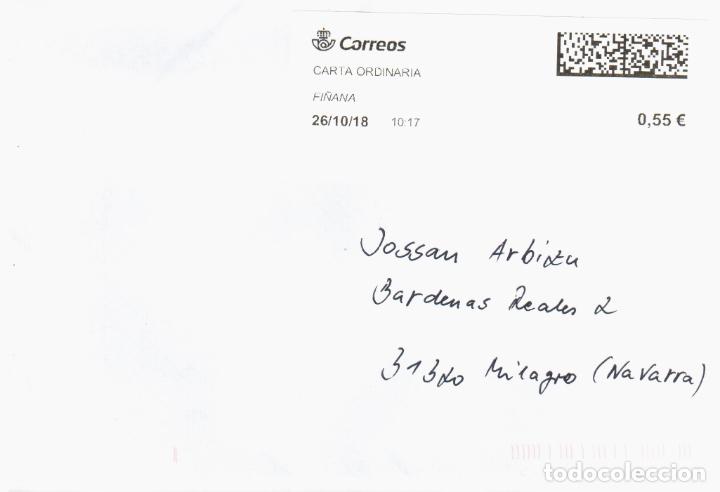 Correos
CARTA ORDINARIA
FIÑANA
26/10/18 10:17
0,55 €
Jossan Arbizu
Bardenas Reales 2
31320 Milagro (Navarra)
todocoleccion